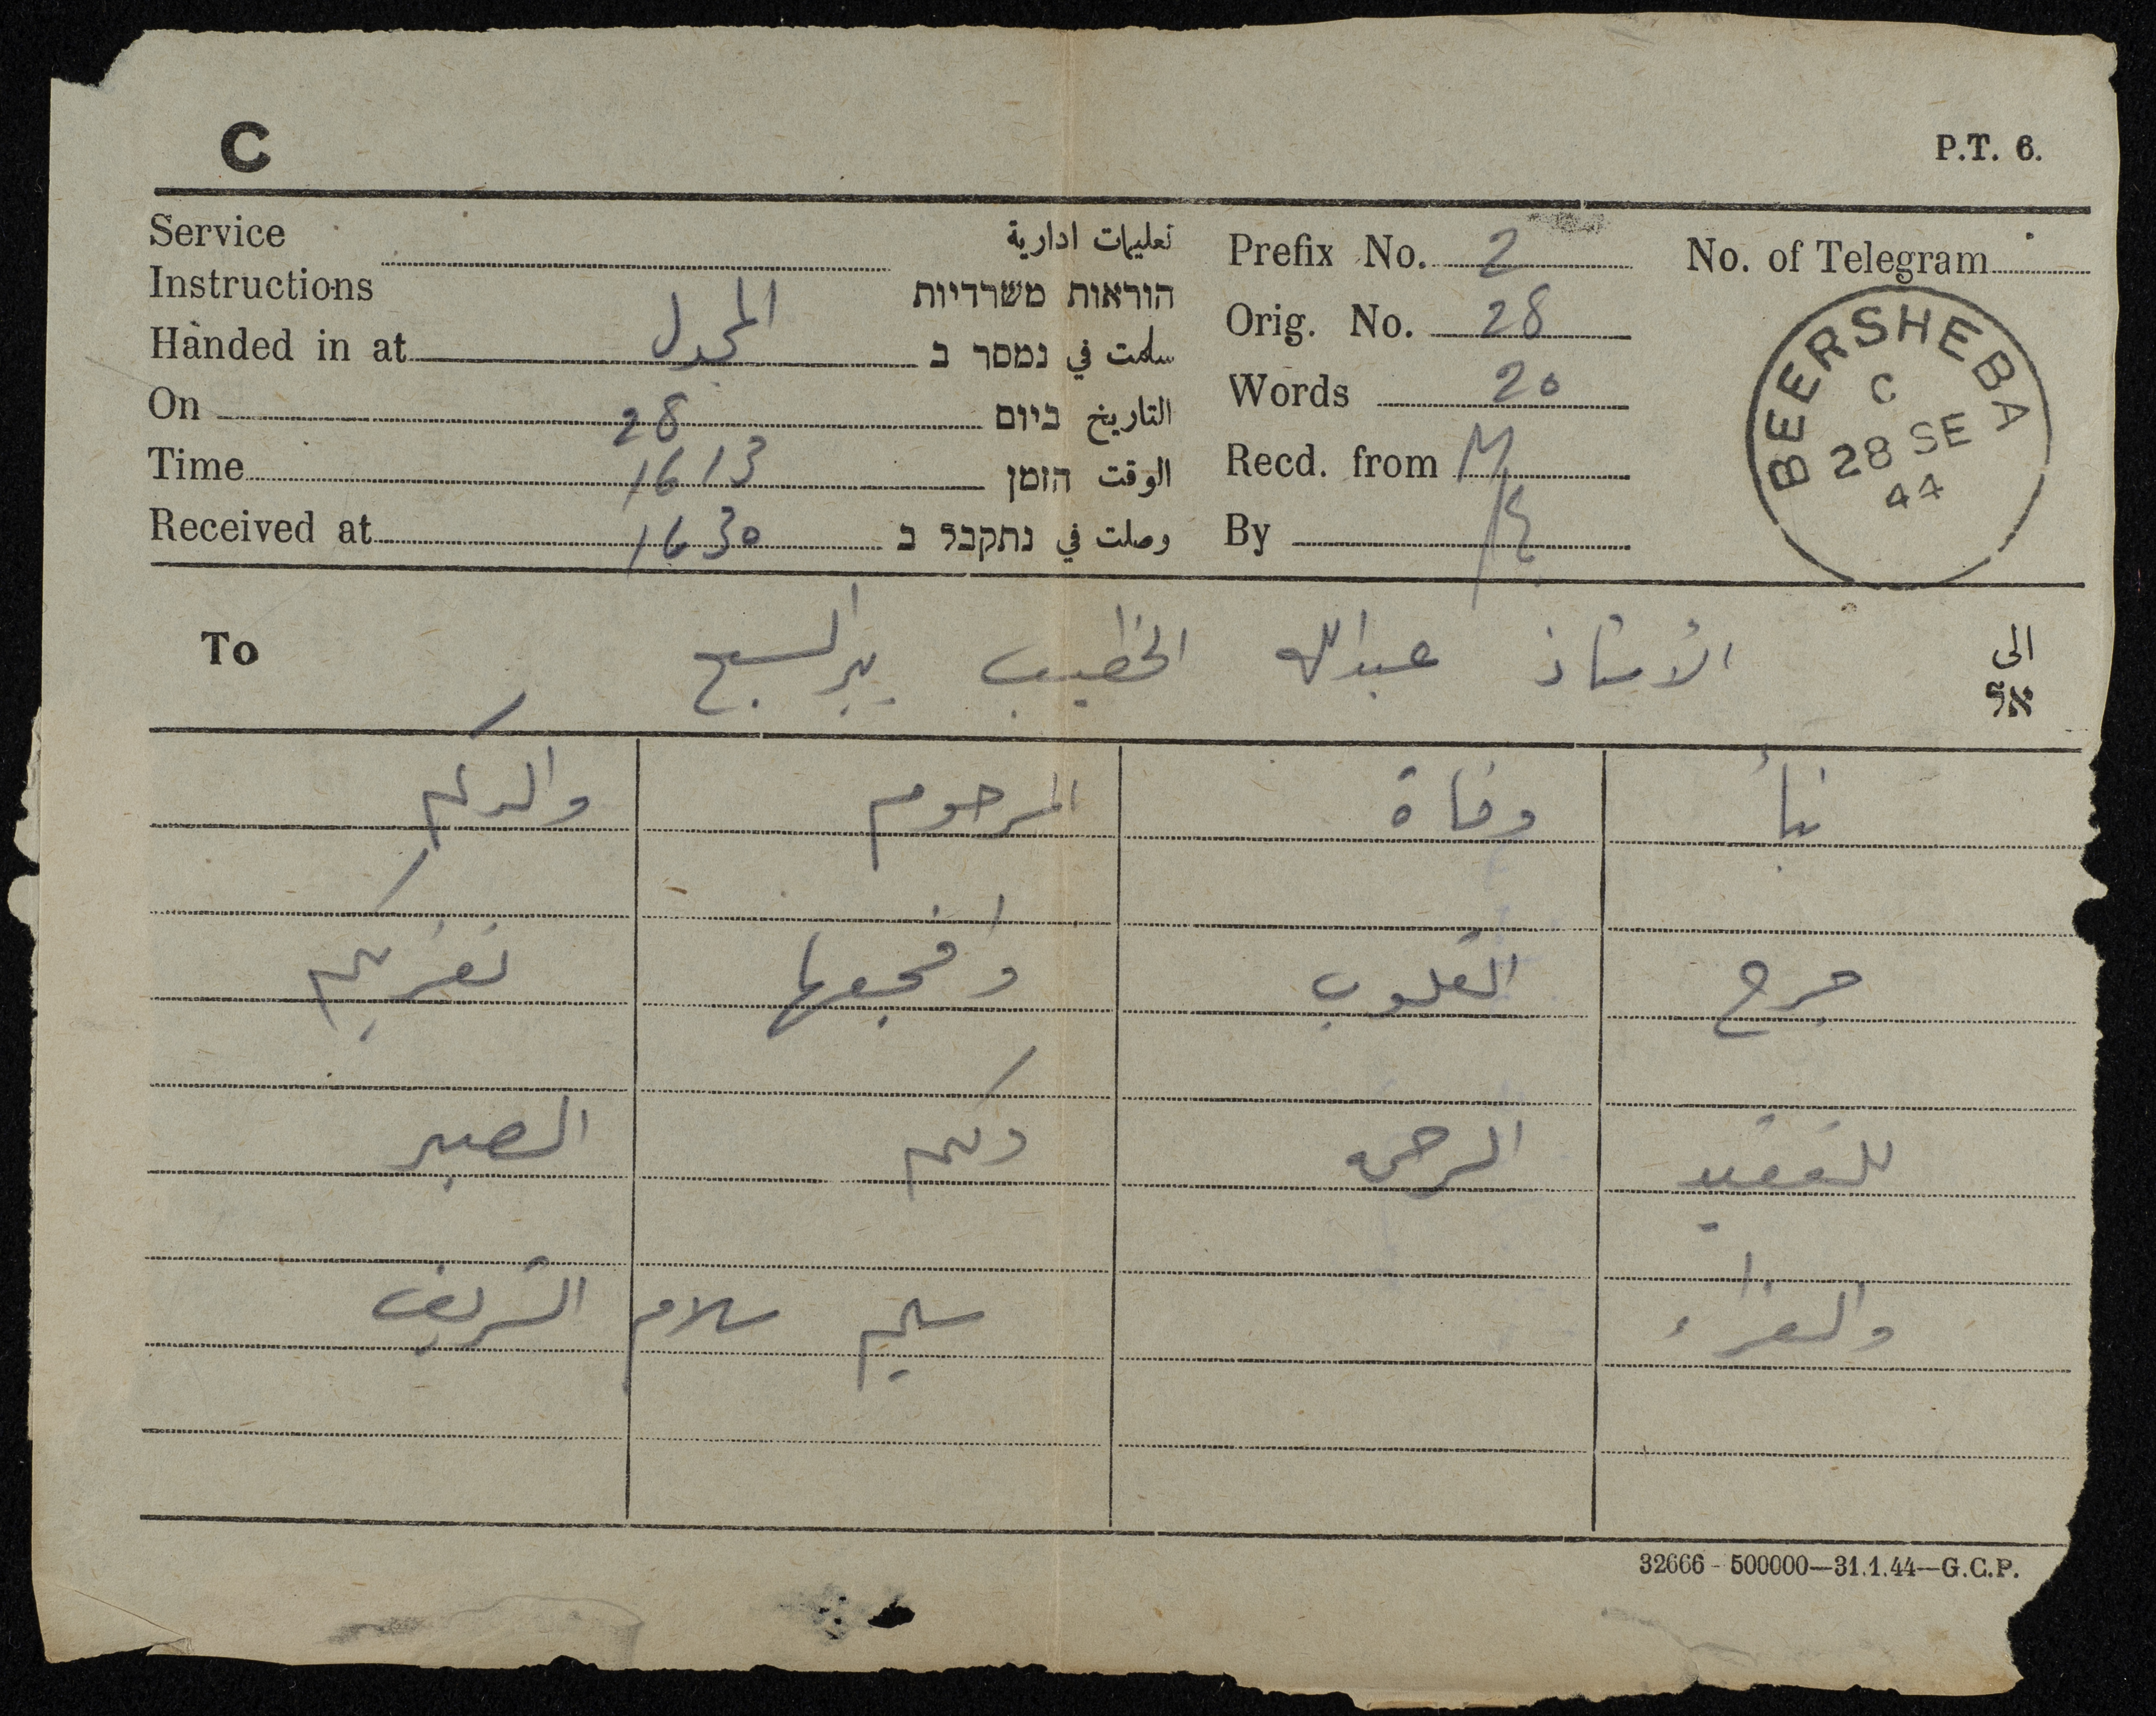 C
P.T. 6.
Service Instructions تعليمات ادارية הוראות משרדיות
Prefix No. 2
No. of Telegram
Handed in at المجدل سلمت في נמסר ב
Orig. No. 28
On 28 التاريخ ביום
Words 20
Time 1613 الوقت הזמן
Recd. from M
Received at 1630 وصلت في נתקבל ב
By
BEERSHEBA
C
28 SE
44
To الأستاذ عبدالله الخطيب بير السبع الى
אל
نبأ وفاة المرحوم والدكم
جرح القلوب وافجعها نعزيكم
للفقيد الرحمة ولكم الصبر
والعزاء سليم سلام الشريف
32666 - 500000—31.1.44—G.C.P.